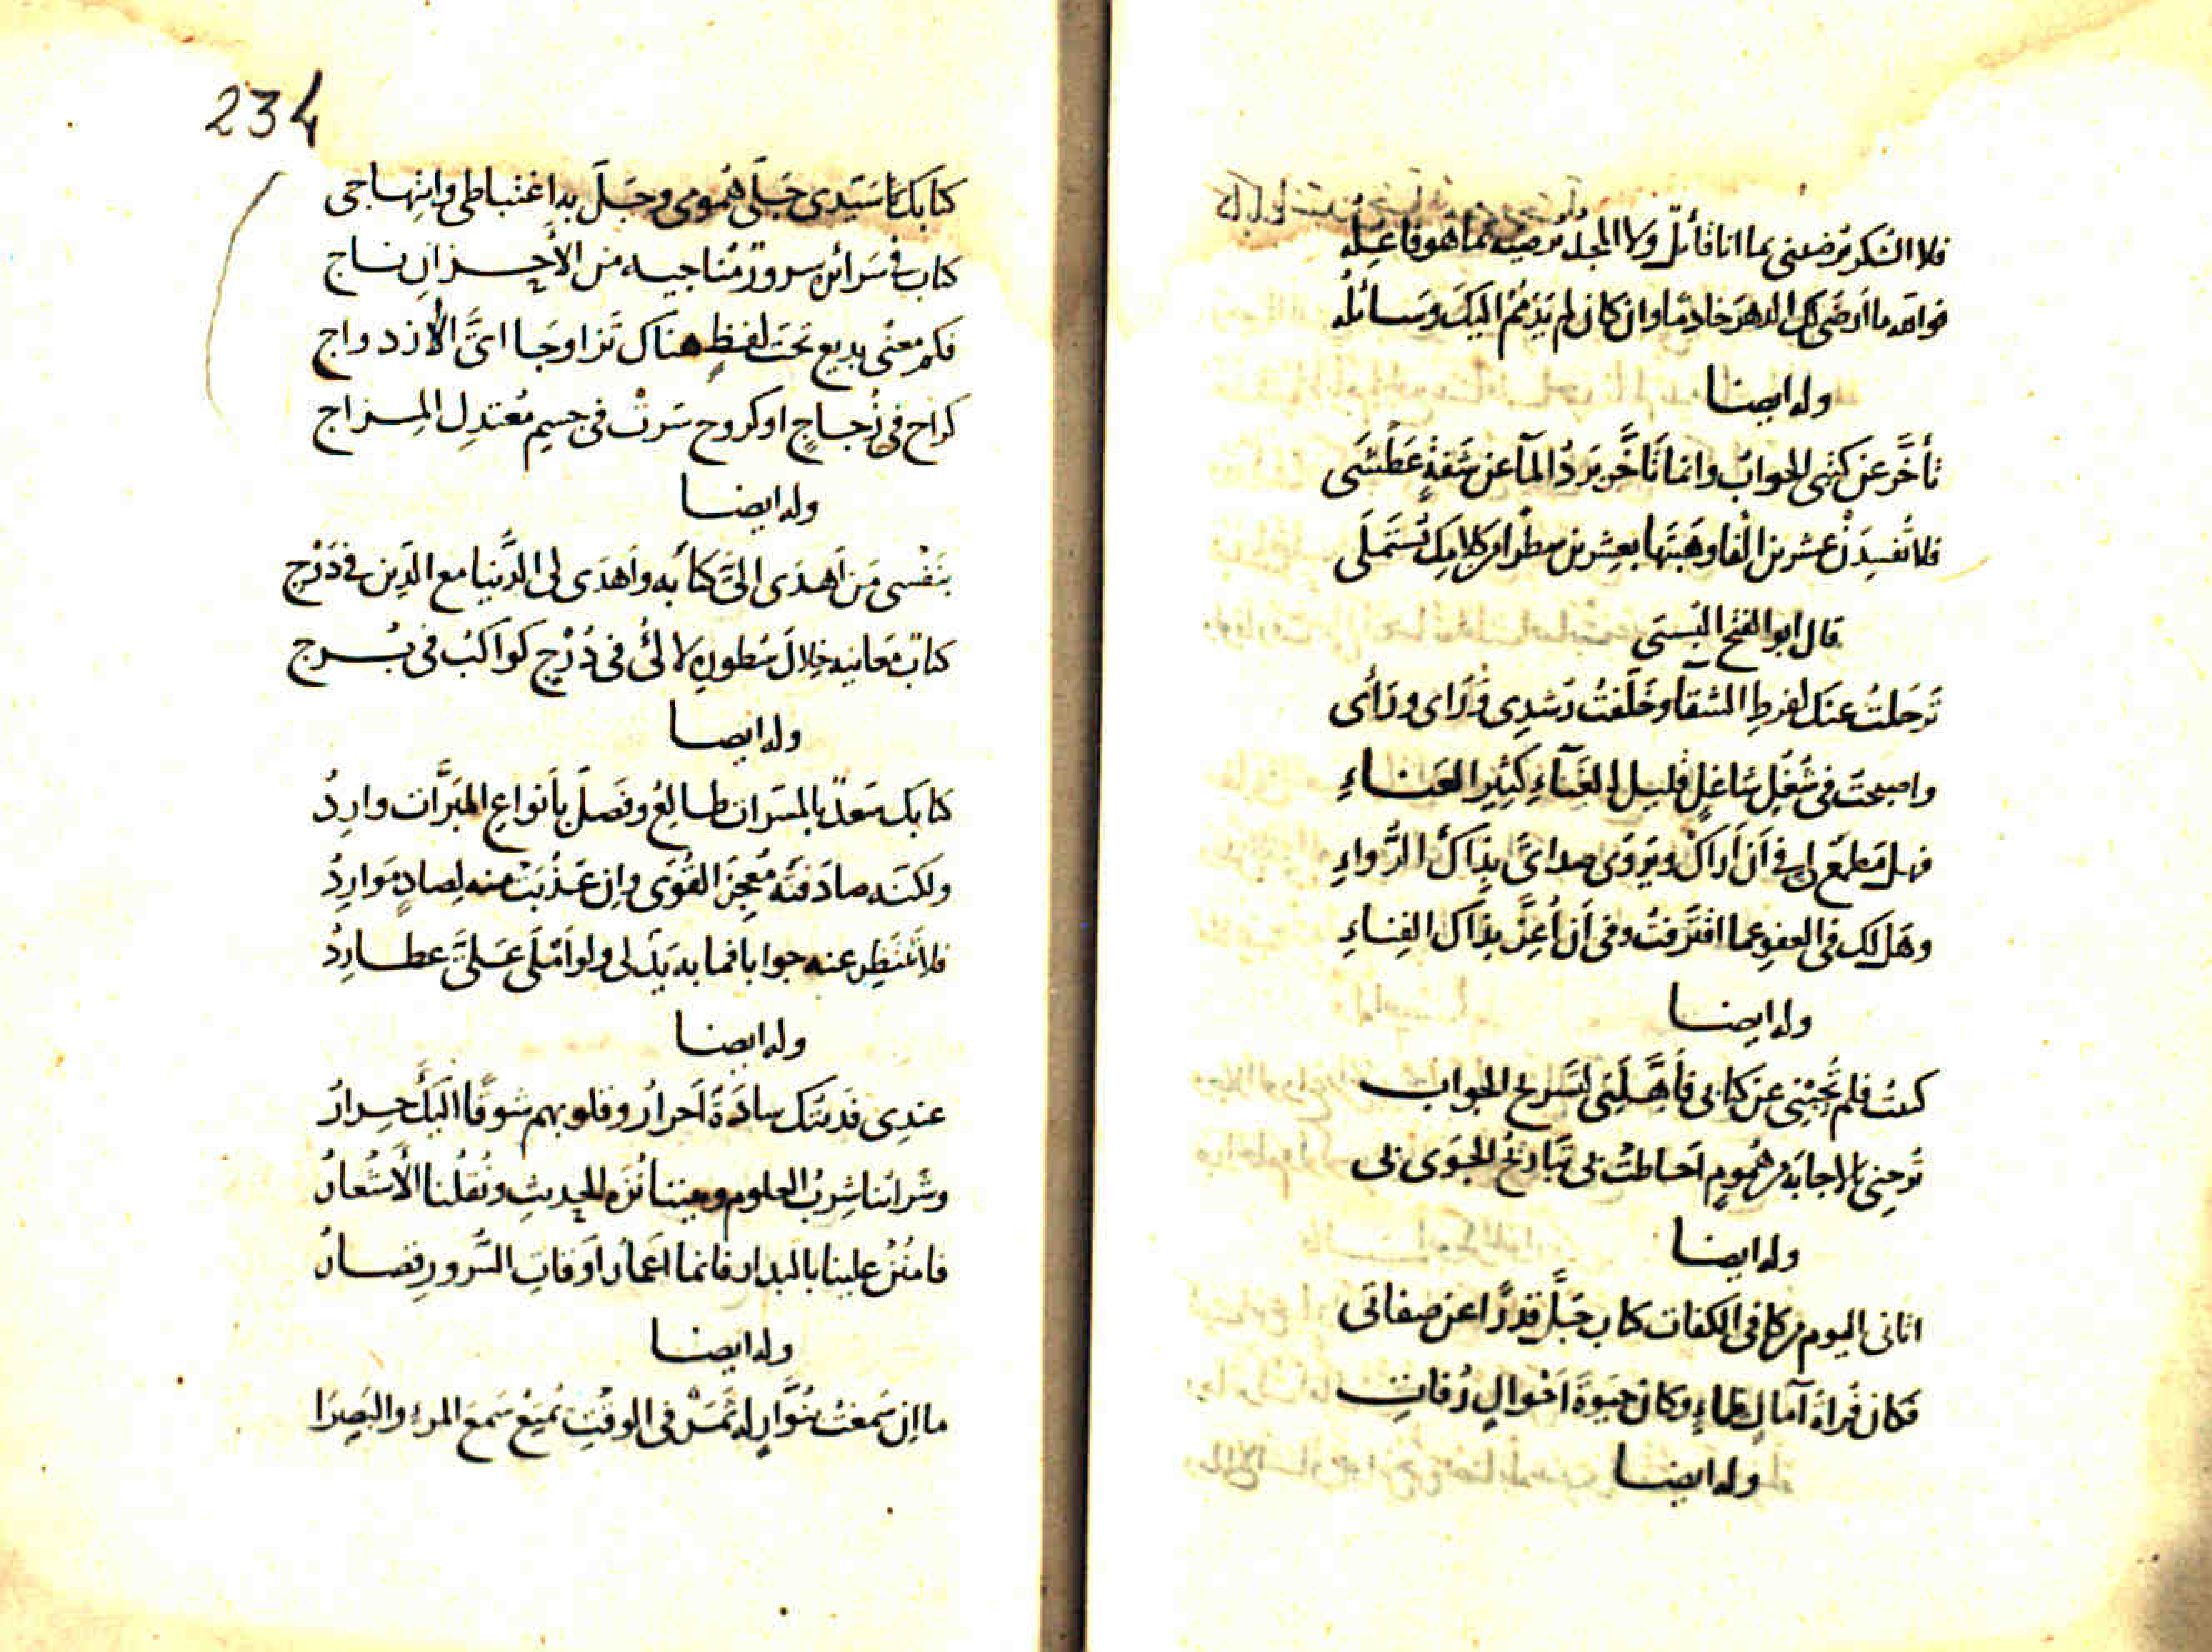 فلا الشكر يُرضيني بما انا قائلٌ ولا المجدُ يُرضيه بما هو فاعِلُه
فوالله ما ارضَى لك الدهرَ خادمًا وان كان لم يَذمُم اليكَ وسائلُه
وله ايضا
تأخَّر عن كتبى الجوابُ وانما تَأخَّر بَردُ المآ عن شَفةٍ عَطشَى
فلا تُفسِدَنْ عشرين الفا وهَبتَها بعِشرين سطرا من كلامِك تُستَملَى
قال ابو الفتح البُستى
تَرحَلتُ عنك لفرطِ الشقآ وخَلَّفتُ رُشدِى وَرَاى ورَأى
واصبحتُ فى شُغُلٍ شاغلٍ قليلِ الغَنآءِ كثيرِ العَناءِ
فهل مَطمَعٌ لى فى اَن اَراكَ ويَروَى صداىَّ بذاك الرُّواءِ
وهَل لك فى العفوِ عما اقتَرفتُ وفى اَن اُعِزَّ بذاك الفِناءِ
وله ايضا
كتبتُ فلم تُجِبْنِى عن كتابى فأهِّلنِى لتَسريح الجواب
تُرِحنِى بالاجابَة من هُمومٍ اَحاطتْ بى تَباريحُ الجَوَى بى
وله ايضا
اتانى اليوم من كافى الكفات كتاب جَلَّ قدرًا عن صفاتى
فكان فُراةَ آمالٍ ظماءٍ وكان حيوةَ اَحْوالٍ رُفاتِ
وله ايضا
234
كتابك سَيّدى جَلَّى هُمومى وجَلَّ به اغتباطى وابتِهاجى
كتاب فى سَرائره سرورٌ مُناجيه من الأحزانِ ناج
فكم معنًى بديعٍ تحت لفظٍ هناك تَزاوَجا اىَّ الازدواج
كراح فى زُجاجٍ او كروح سَرتْ فى جسمٍ مُعتدِل المِزاج
وله ايضا
بنَفْسى مَن اَهدَى الىَّ كتابه واَهدَى لى الدُّنيا مع الدِّين فى دَرْج
كتابٌ مَعانيه خِلالَ سُطورِه لآلئُ فى دُرْجٍ كواكبُ فى بُرج
وله ايضا
كتابك سَعدٌ بالمسَرات طالِعُ وفَصلٌ بأنواعِ المَبَرَّات وارِدُ
ولكنه صادَفتُه مُعجِزَ القُوَى وإن عَذُبَتْ منه لِصادٍ مَوارِدُ
فلا تَنتَظِر عنه جوابا فما به يَدٌ لى ولو اَمْلَى عَلَىَّ عطارِدُ
وله ايضا
عندِى فَديتك سادَةٌ اَحرارُ وقلوبهم شوقًا اليك حِرارُ
وشَرابُنا شِربُ العلوم وبيننا نُزَه الحديثِ ونُقلُنا الأشعارُ
فامنُنْ علينا بالبِدار فانما اَعمارُ اَوقاتِ السُّرورِ قِصارُ
وله ايضا
ما اِن سَمعتُ بنُوَّارٍ له ثَمَرٌ فى الوقتِ يُمتِعُ سَمعَ المرءِ والبَصَرَا